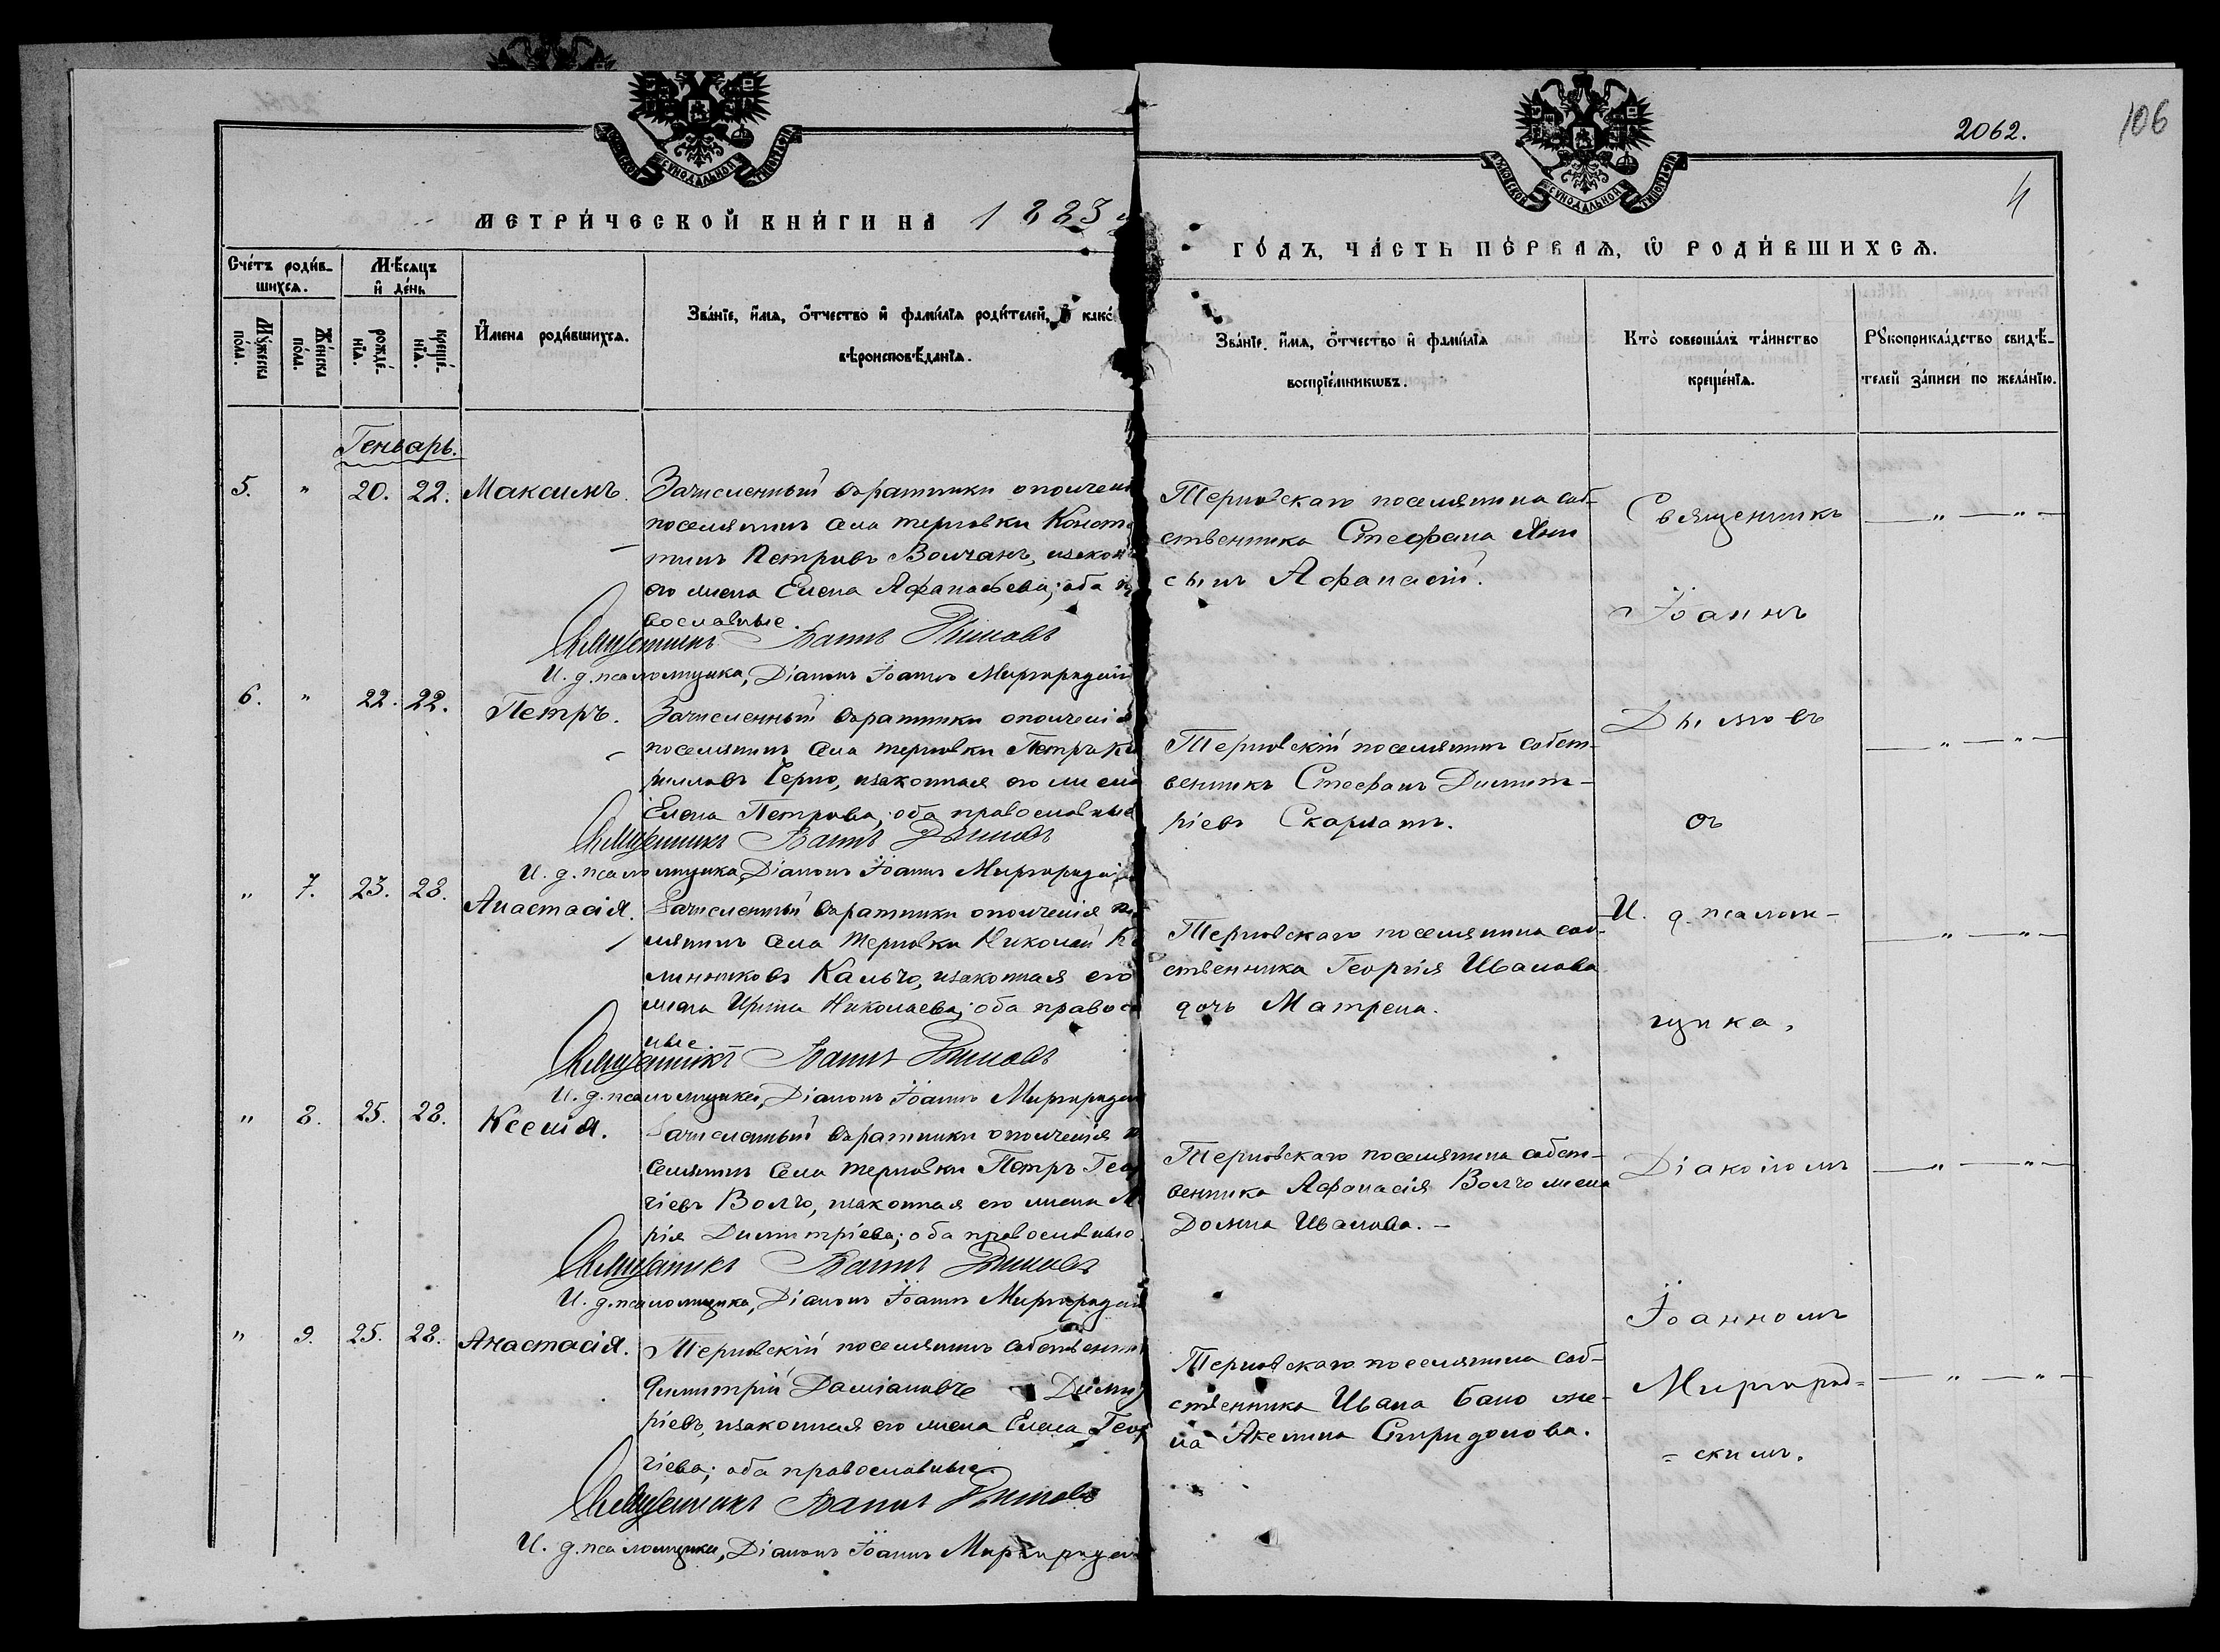 2062.
106
4
МЕТРИ́ЧЕСКОЙ КНИ́ГИ НА 1883
ГО́ДЪ, ЧА́СТЬ ПЕ́РВАѦ, Ѡ҆ РОДИ́ВШИХСѦ.
Сче́тъ роди́в-
шихсѧ.
Мѣ́сѧцъ
и҆ де́нь
Мꙋ́жеска
по́ла.
Же́нска
по́ла.
рожде́-
нїѧ.
креще́-
нїѧ.
И҆мена роди́вшихсѧ.
Зва́нїе, и҆́мѧ, ѻ҆́тчество и҆ фами́лїѧ роди́телей, и҆ како́
вѣроисповѣ́данїѧ.
Зва́нїе, и҆́мѧ, ѻ҆́тчество и҆ фами́лїѧ
воспрїе́мникѡвъ.
Кто̀ соверша́лъ та́инство
креще́нїѧ.
Рꙋкоприкла́дство свидѣ́-
телей за́писи по жела́нїю.
Генварь.
5. " 20. 22. Максимъ.
Зачисленный въ ратники ополчен
поселянинъ села терновки Конст
тинъ Петровъ Волчанъ, изакон
его жена Елена Афанасьева; оба п
вославные.
Священникъ Іоаннъ Дымовъ
И. д. псаломщика, Діаконъ Іоаннъ Миргородскій
Терновскаго поселянина соб-
ственника Стефана Яни
сынъ Афанасій.
6. " 22. 22. Петръ.
Зачисленный въ ратники ополченія
поселянинъ села терновки Петръ Ки
рилловъ Черно, изаконная его жена
Елена Петрова; оба православные
Священникъ Іоаннъ Дымовъ
И. д. псаломщика, Діаконъ Іоаннъ Миргородскі
Терновскій поселянинъ собст-
венникъ Стефанъ Димит-
ріевъ Скарлатъ.
" 7. 23. 28. Анастасія.
Зачисленный въ ратники ополченія по
лянинъ села Терновки Николай К
линниковъ Кальчо, изаконная его
жена Ирина Николаева; оба правосл
ные.
Священникъ Іоаннъ Дымовъ
И. д. псаломщика, Діаконъ Іоаннъ Миргородск
Терновскаго поселянина соб-
ственника Георгія Иванова
дочь Матрена.
" 8. 25. 28. Ксенія.
Зачисленный въ ратники ополченія п
селянинъ села терновки Петръ Геор
гіевъ Волчо, изаконная его жена М
рія Димитріева; оба православные.
Священникъ Іоаннъ Дымовъ
И. д. псаломщика, Діаконъ Іоаннъ Миргородск
Терновскаго поселянина собст-
венника Афанасія Волчо жена
Домна Иванова. –
" 9. 25. 28. Анастасія.
Терновскій поселянинъ собственни
Димитрій Даміановъ Димит
ріевъ, изаконная его жена Елена Геор
гіева; оба православные.
Священникъ Іоаннъ Дымовъ
И. д. псаломщика, Діаконъ Іоаннъ Миргородск
Терновскаго поселянина соб-
ственника Ивана Бано же-
на Акелина Спиридонова.
Священникъ
Іоаннъ
Дымовъ
съ
И. д. псалом-
щика,
Діакономъ
Іоанномъ
Миргород=
=скимъ.